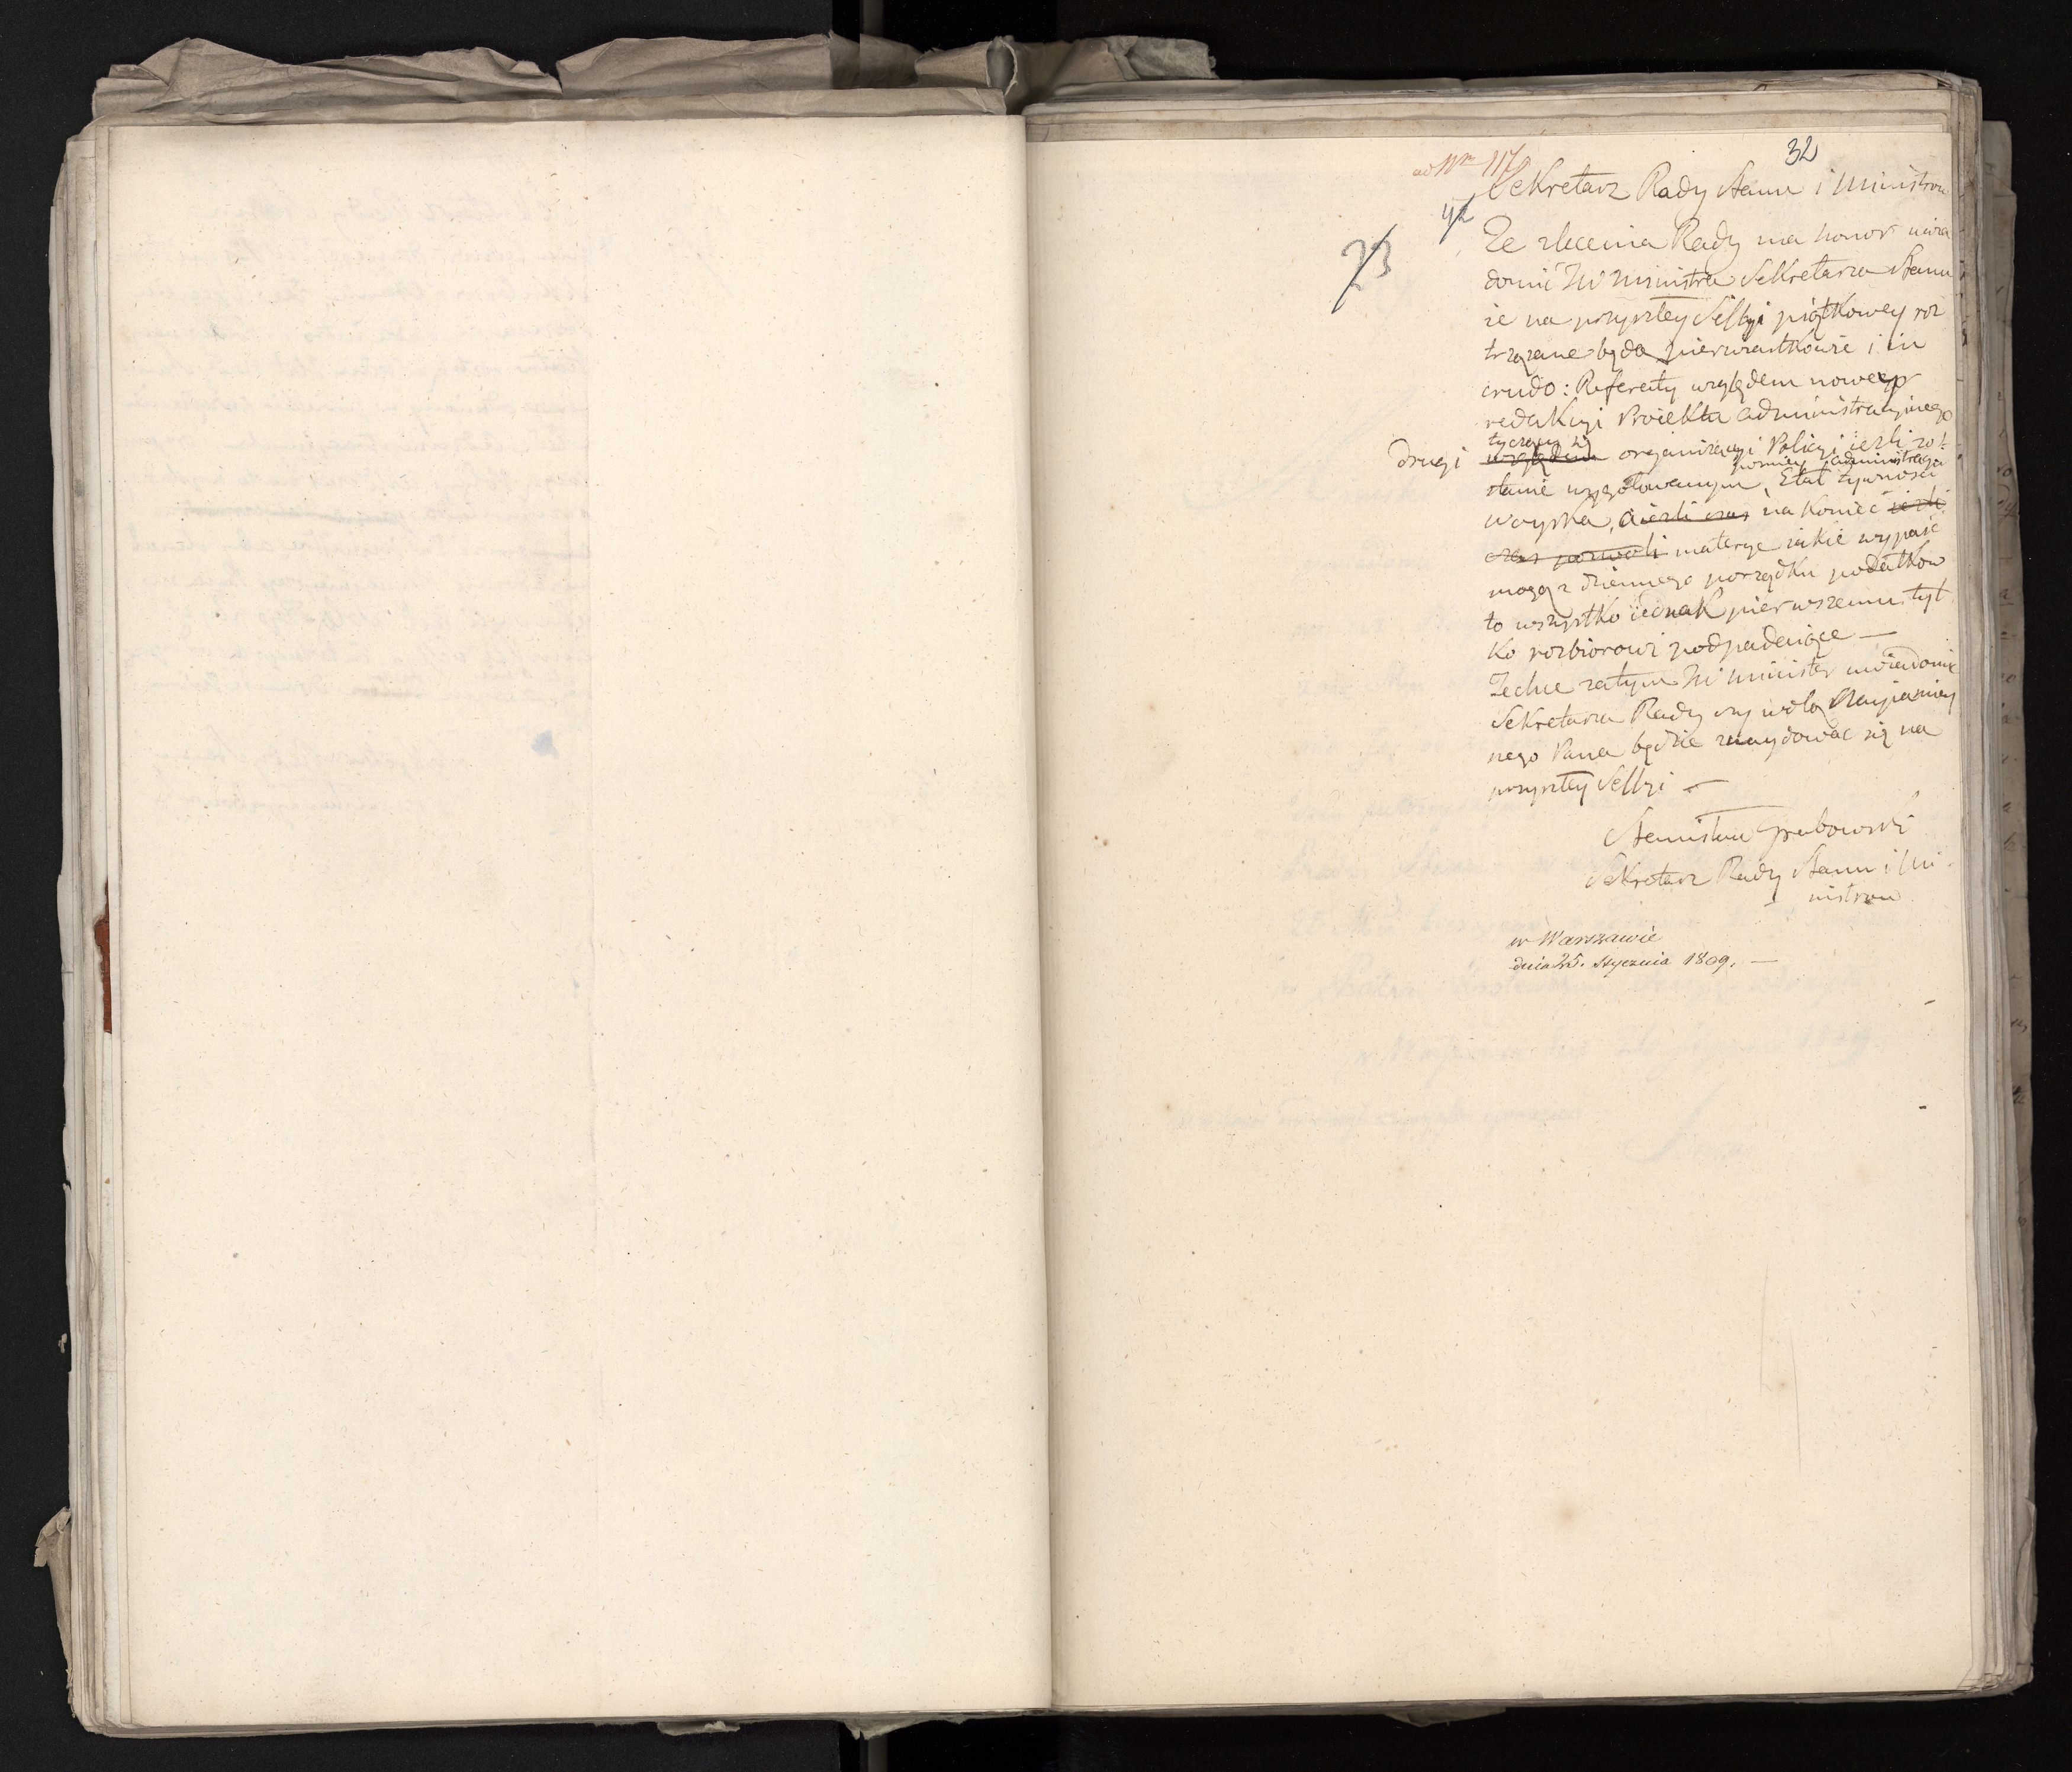 32
ad Nro 117
Sekretarz Rady Stanu i Ministrow
42
23
Ze zlecenia Rady ma honor uwia
domić JW Ministra Sekretarza Stanu
że na przyszłey Sessyi piątkowey roz
trząsane będą pierwiastkowie i in
crudo: Referaty względem nowey
redakcyi Proiektu administracyinego
drugi tyczący się
względem organizacyi Policyi ieżli zo-
stanie wygotowanym, Etat żywności
woyska, a ieżli czas na koniec ieżli
czas pozwoli materye iakie wypaść
mogą z dziennego porządku podatków
to wszystko iednak pierwszemu tyl
ko rozbiorowi podpadaiące —
Zechce zatym JW Minister uwiadomić
Sekretarza Rady czy wolą Nayiaśniey
nego Pana będzie znaydować się na
przyszłey Sessyi —
Stanisław Grabowski
Sekretarz Rady Stanu i Mi-
nistrow
w Warszawie
dnia 25. stycznia 1809. —